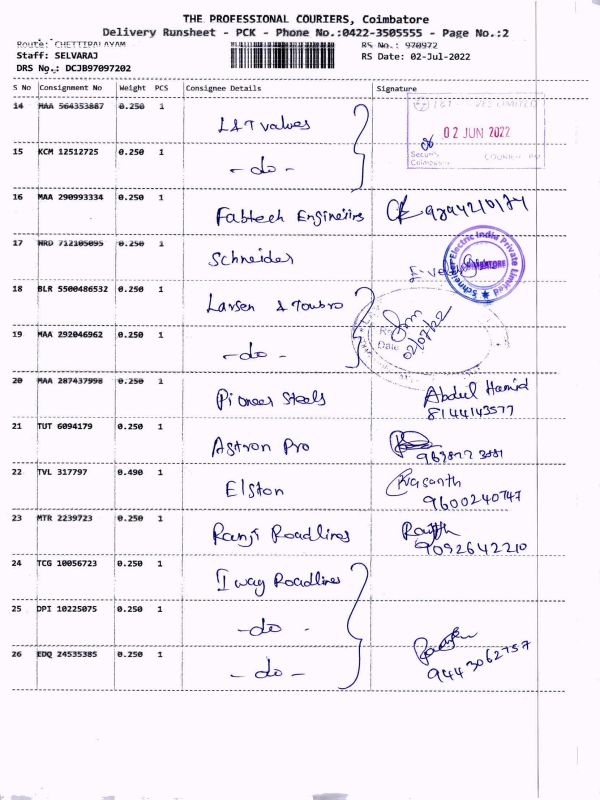 THE PROFESSIONAL COURIERS, Coimbatore
Delivery Runsheet - PCK - Phone No.:0422-3505555 - Page No.:2
Route: CHETTIPALAYAM RS No.: 970972
Staff: SELVARAJ RS Date: 02-Jul-2022
DRS No.: DCJB97097202
S No Consignment No Weight PCS Consignee Details Signature
14 MAA 564353887 0.250 1 L&T valves
02 JUN 2022
Security
Coimbatore
15 KCM 12512725 0.250 1 - do -
16 MAA 290993334 0.250 1 Fabtech Engineiirs
17 NRD 712105095 0.250 1 Schneider
Schneider Electric India Private Limited
COIMBATORE
18 BLR 5500486532 0.250 1 Larsen & Toubro
Date 02/07/22
19 MAA 292046962 0.250 1 - do -
20 MAA 287437998 0.250 1 Pioneer Steels Abdul Hamid
8144143577
21 TUT 6094179 0.250 1 Astron Pro
22 TVL 317797 0.490 1 Elston Prasanth
9600240747
23 MTR 2239723 0.250 1 Ranji Roadlines
9092642210
24 TCG 10056723 0.250 1 I way Roadlines
25 DPI 10225075 0.250 1 - do -
26 EDQ 24535385 0.250 1 - do - 9443062757